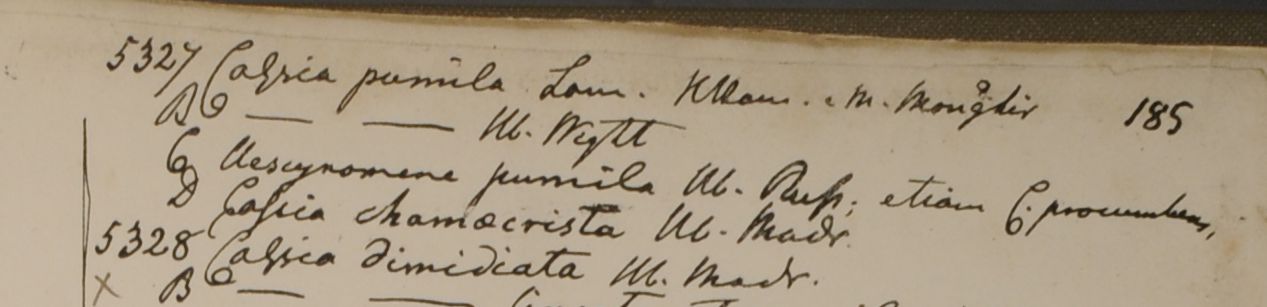 5327 Cassia pumila Lam. HHam. M. Monghir 185
B — — Hb. Wight
C Aescynomene pumila Hb. Russ; etiam C. procumbens,
D Cassia chamaecrista Hb. Madr.
5328 Cassia dimidiata Hb. Madr.
× B — —